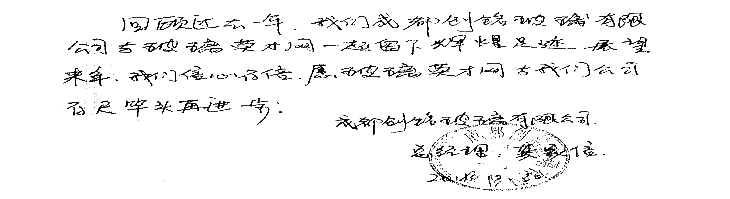 回顾过去一年,我们成都创铭玻璃有限
公司与玻璃英才网一起留下辉煌足迹.展望
来年,我们信心百倍.愿玻璃英才网与我们公司
百尺竿头再进一步!
成都创铭玻璃有限公司.
总经理: